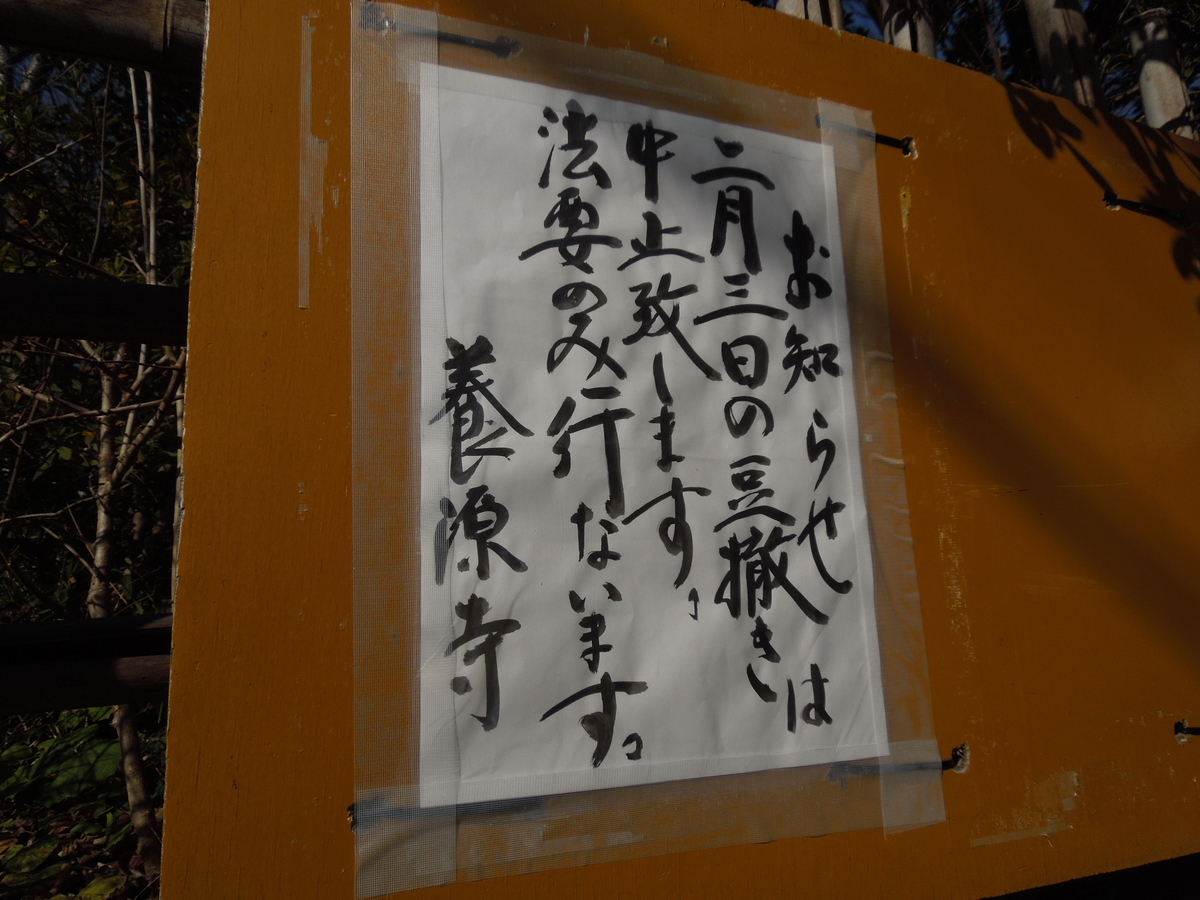 お知らせ
二月三日の豆撤きは
中止致します。
法要のみ行ないます。
養源寺